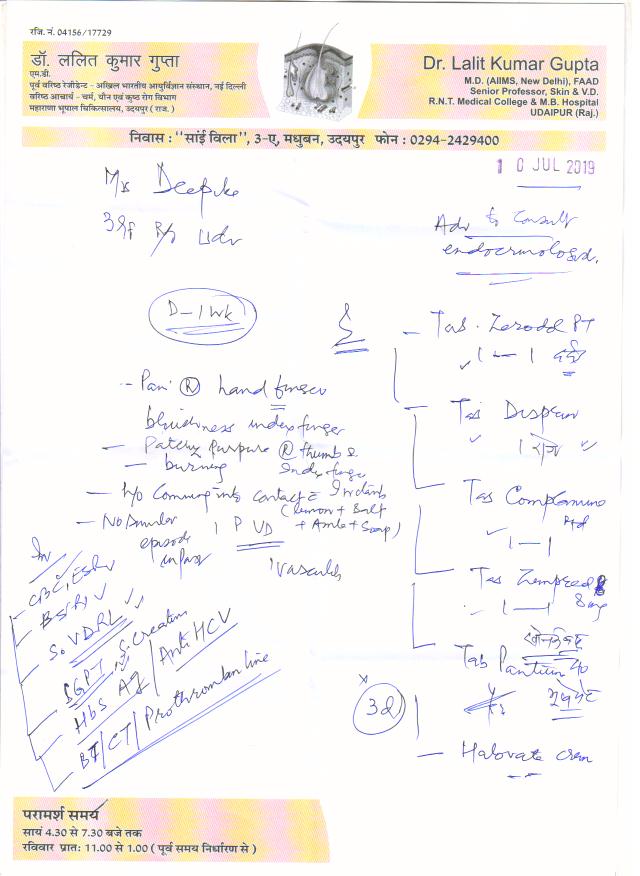 रजि. नं. 04156/17729
डॉ. ललित कुमार गुप्ता
एम.डी.
पूर्व वरिष्ठ रेजीडेन्ट - अखिल भारतीय आयुर्विज्ञान संस्थान, नई दिल्ली
वरिष्ठ आचार्य - चर्म, यौन एवं कुष्ठ रोग विभाग
महाराणा भूपाल चिकित्सालय, उदयपुर ( राज. )
Dr. Lalit Kumar Gupta
M.D. (AIIMS, New Delhi), FAAD
Senior Professor, Skin & V.D.
R.N.T. Medical College & M.B. Hospital
UDAIPUR (Raj.)
निवास : "सांई विला", 3-ए, मधुबन, उदयपुर फोन : 0294-2429400
1 0 JUL 2019
Deepika
R/o Udr
Adv to Consult
endocrinologist.
D-1wk
- Tab. Zerodol PT
1 - 1
- Pain (R) hand finger
bluishness index finger
- Patchy Purpura (R) thumb &
Index finger
- burning
- h/o Coming into contact = Irritants
(lemon + Salt
+ Amla + Soap)
- No similar
episode
in past
PVD
? vasculitis
Tab Disprin
1 रोज
Tab
1 - 1
Tab
1 - 1
Tab Pantium 40
3d
- Halovate cream
Inv
CBC, ESR
BSR
S. VDRL
SGPT, S. Creatin
HBS Ag / Anti HCV
BT/CT/Prothrombin time
परामर्श समय
सायं 4.30 से 7.30 बजे तक
रविवार प्रातः 11.00 से 1.00 ( पूर्व समय निर्धारण से )